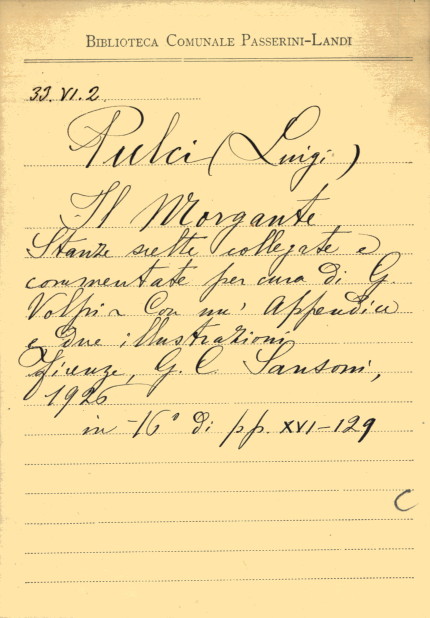 BIBLIOTECA COMUNALE PASSERINI-LANDI
33.VI.2.
Pulci (Luigi)
Il Morgante
Stanze scelte collegate e
commentate per cura di G.
Volpi - Con un' Appendice
e due illustrazioni
Firenze, G. C. Sansoni,
1926
in -16° di pp. XVI-129
C